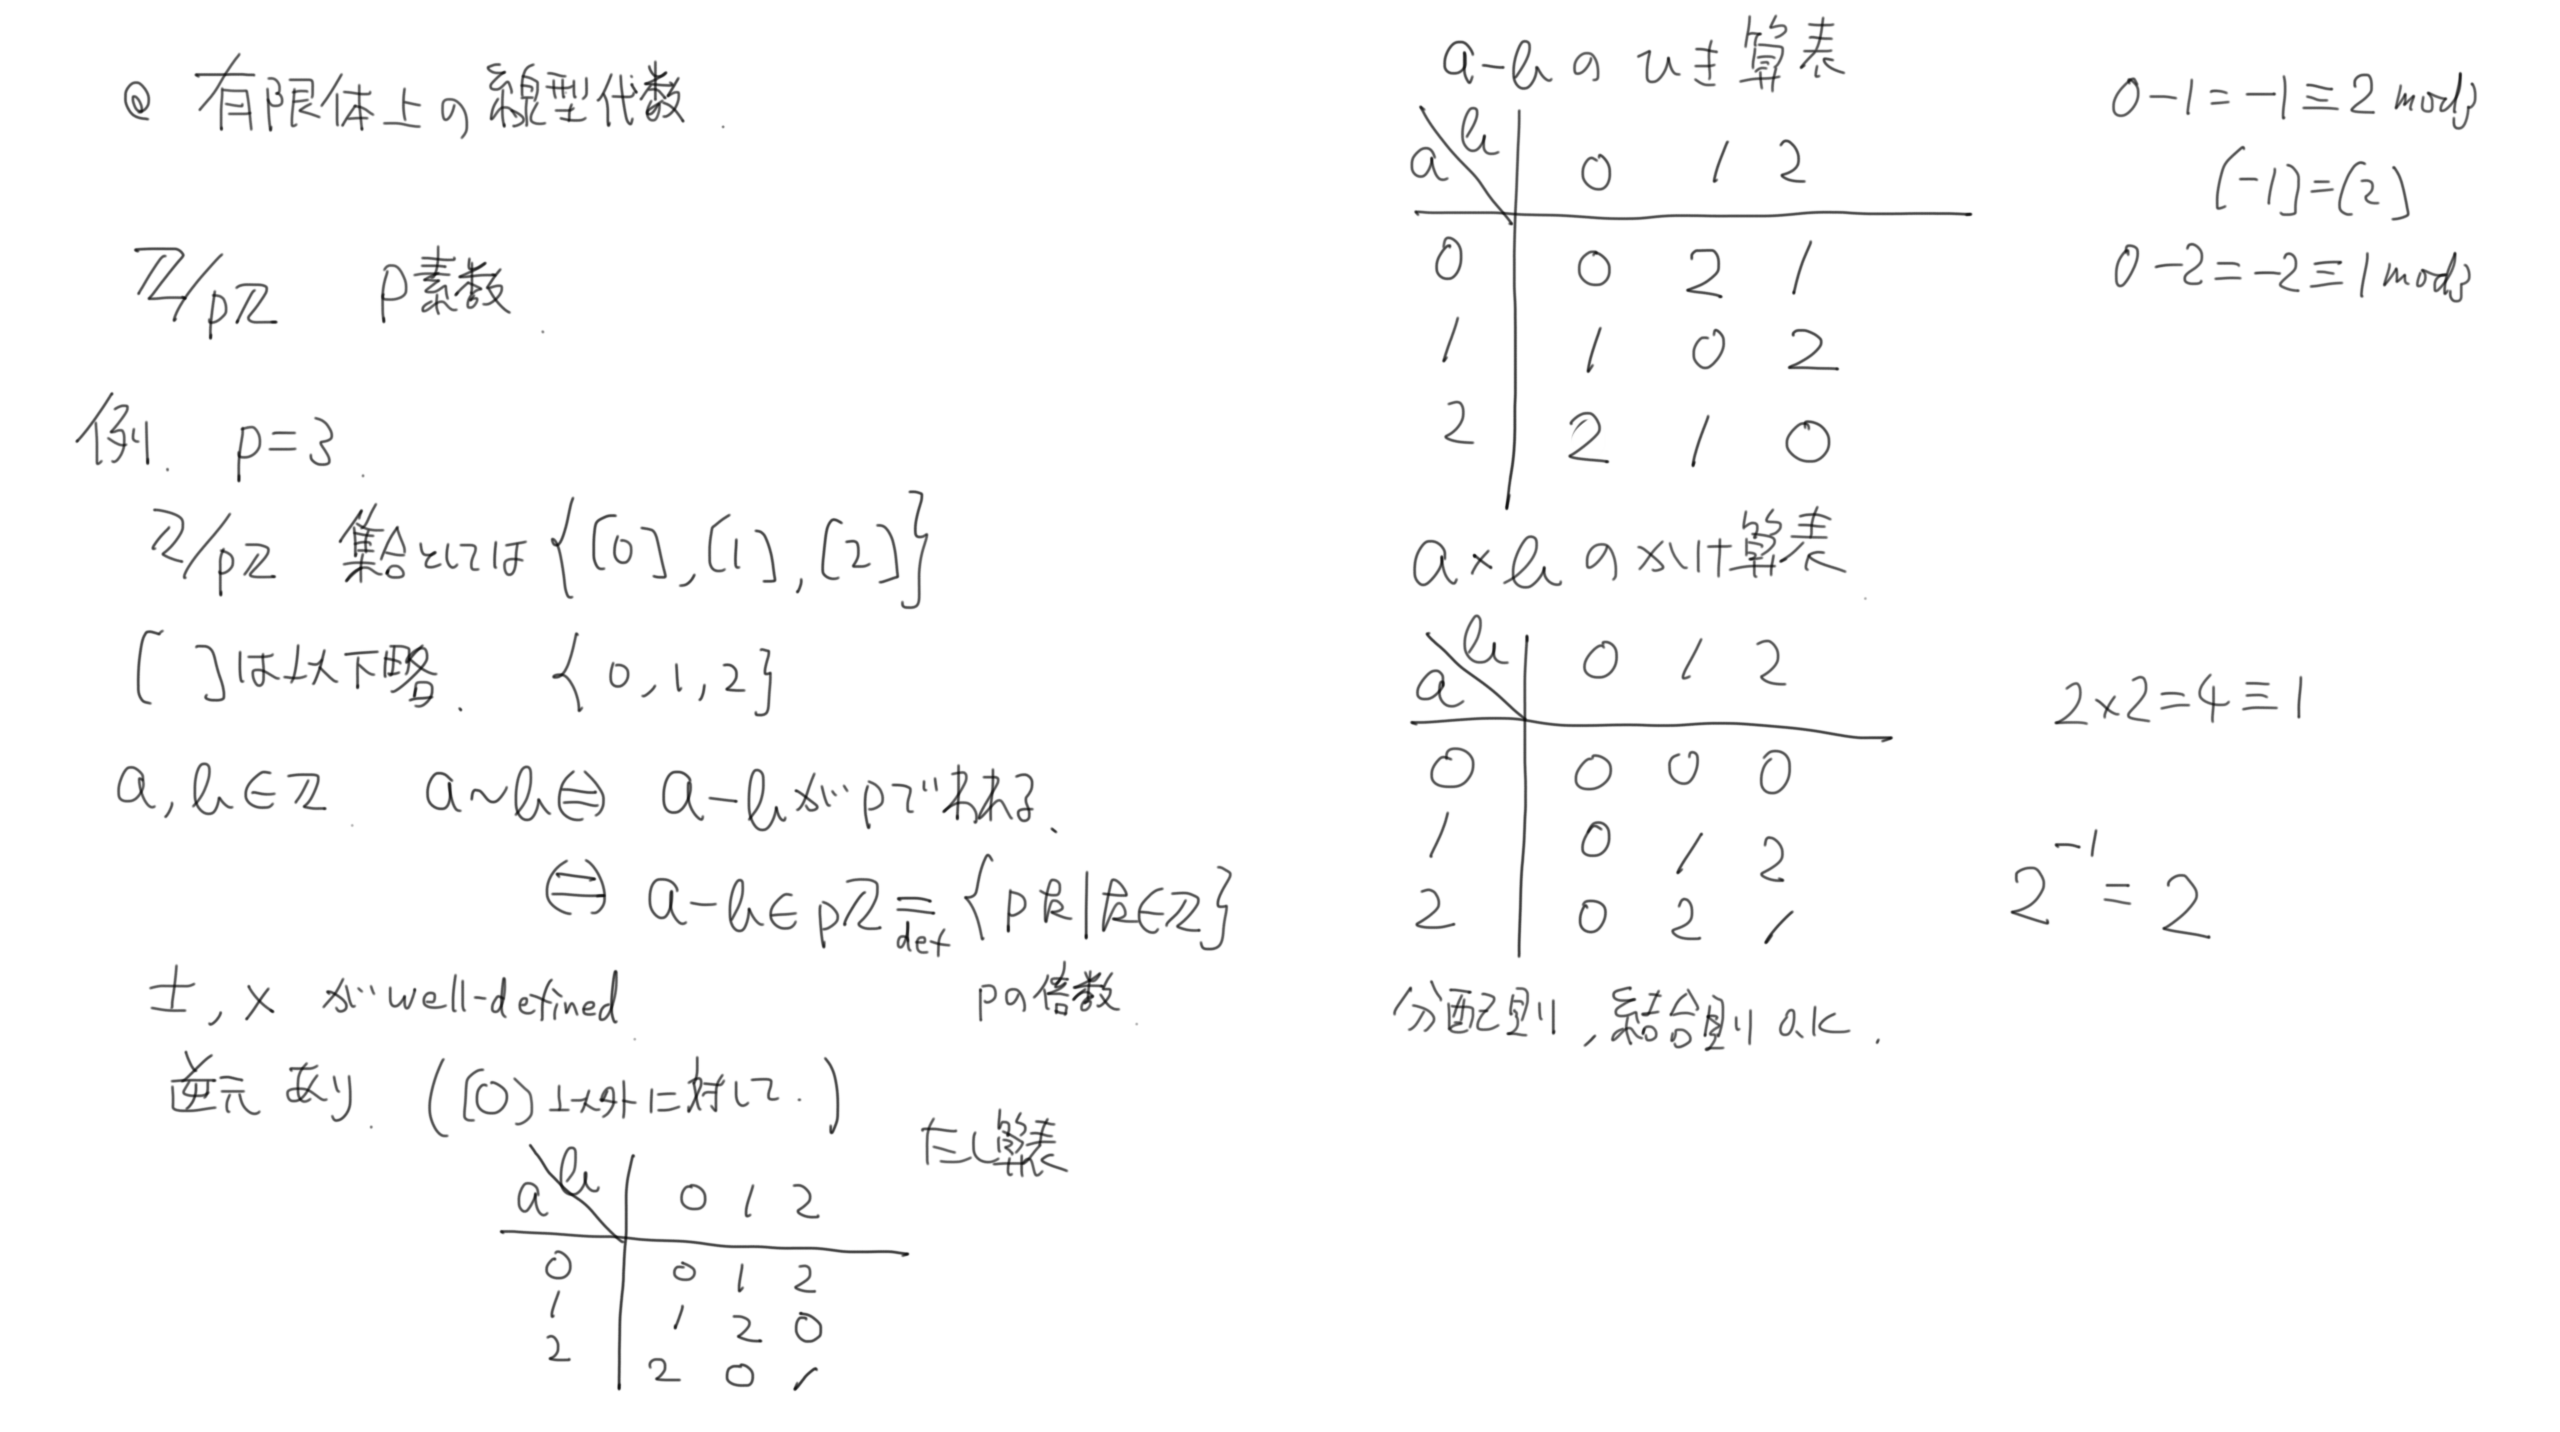 @ 有限体上の線型代数.
ℤ/pℤ p素数.
例. p=3.
ℤ/pℤ 集合としては {[0],[1],[2]}
[ ]は以下略. {0,1,2}
a,b∈ℤ. a~b⇔ a-bがpでわれる.
⇔ a-b∈pℤ = {pk|k∈ℤ}
def
pの倍数.
±,× がwell-defined.
逆元 あり. ([0]以外に対して.)
たし算表
a\b 0 1 2
0 0 1 2
1 1 2 0
2 2 0 1
a-bのひき算表
a\b 0 1 2
0 0 2 1
1 1 0 2
2 2 1 0
0-1=-1≡2 mod3
[-1]=[2]
0-2=-2≡1 mod3
a×bのかけ算表.
a\b 0 1 2
0 0 0 0
1 0 1 2
2 0 2 1
2×2=4≡1
2⁻¹=2
分配則,結合則 O.K.